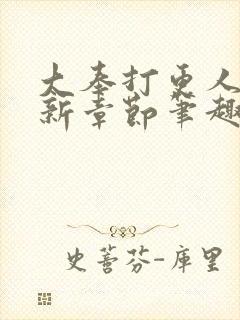 太奉打更人
新章節筆趣
史蒈芬-庫里